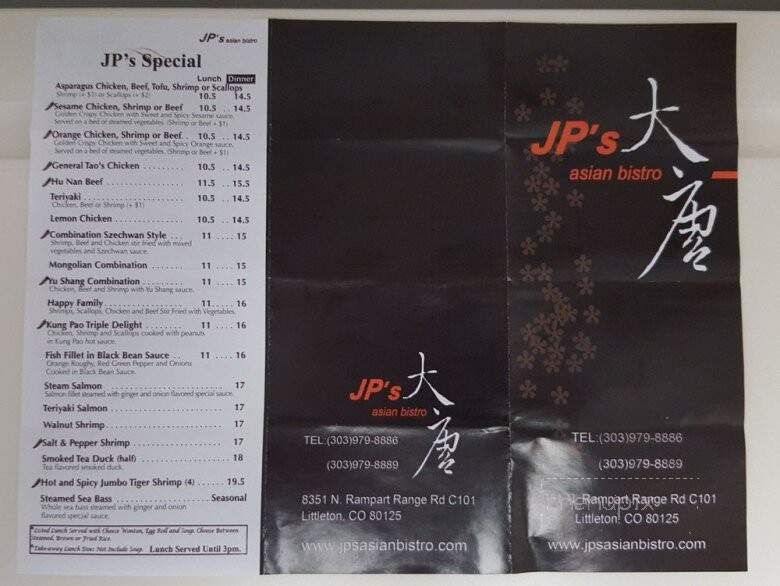 JP's asian bistro
JP's Special
Lunch Dinner
Asparagus Chicken, Beef, Tofu, Shrimp or Scallops
Shrimp (+ $1) or Scallops (+ $2) 10.5 14.5
Sesame Chicken, Shrimp or Beef 10.5 .. 14.5
Golden Crispy Chicken with Sweet and Spicy Sesame sauce.
Served on a bed of steamed vegetables. (Shrimp or Beef + $1)
Orange Chicken, Shrimp or Beef.. 10.5 .. 14.5
Golden Crispy Chicken with Sweet and Spicy Orange sauce.
Served on a bed of steamed vegetables. (Shrimp or Beef + $1)
General Tao's Chicken ......... 10.5 .. 14.5
Hu Nan Beef ............... 11.5 .. 15.5
Teriyaki .................. 10.5 .. 14.5
Chicken, Beef or Shrimp (+ $1)
Lemon Chicken ............. 10.5 .. 14.5
Combination Szechwan Style ... 11 .... 15
Shrimp, Beef and Chicken stir fried with mixed
vegetables and Szechwan sauce.
Mongolian Combination ........ 11 .... 15
Yu Shang Combination ......... 11 .... 15
Chicken, Beef and Shrimp with Yu Shang sauce.
Happy Family................ 11..... 16
Shrimps, Scallops, Chicken and Beef Stir Fried with Vegetables.
Kung Pao Triple Delight ........ 11 .... 16
Chicken, Shrimp and Scallops cooked with peanuts
in Kung Pao hot sauce.
Fish Fillet in Black Bean Sauce .. 11 .... 16
Orange Roughy, Red Green Pepper and Onions
Cooked in Black Bean Sauce.
Steam Salmon .................... 17
Salmon fillet steamed with ginger and onion flavored special sauce.
Teriyaki Salmon .................... 17
Walnut Shrimp..................... 17
Salt & Pepper Shrimp ............... 17
Smoked Tea Duck (half) ............. 18
Tea flavored smoked duck.
Hot and Spicy Jumbo Tiger Shrimp (4) .... 19.5
Steamed Sea Bass ............... Seasonal
Whole sea bass steamed with ginger and onion
flavored special sauce.
*Listed Lunch Served with Cheese Wonton, Egg Roll and Soup. Choose Between
Steamed, Brown or Fried Rice.
*Take-away Lunch Does Not Include Soup. Lunch Served Until 3pm.
JP's 大唐
asian bistro
TEL:(303)979-8886
(303)979-8889
8351 N. Rampart Range Rd C101
Littleton, CO 80125
www.jpsasianbistro.com
JP's 大唐
asian bistro
TEL:(303)979-8886
(303)979-8889
Rampart Range Rd C101
Littleton, CO 80125
www.jpsasianbistro.com
menupix